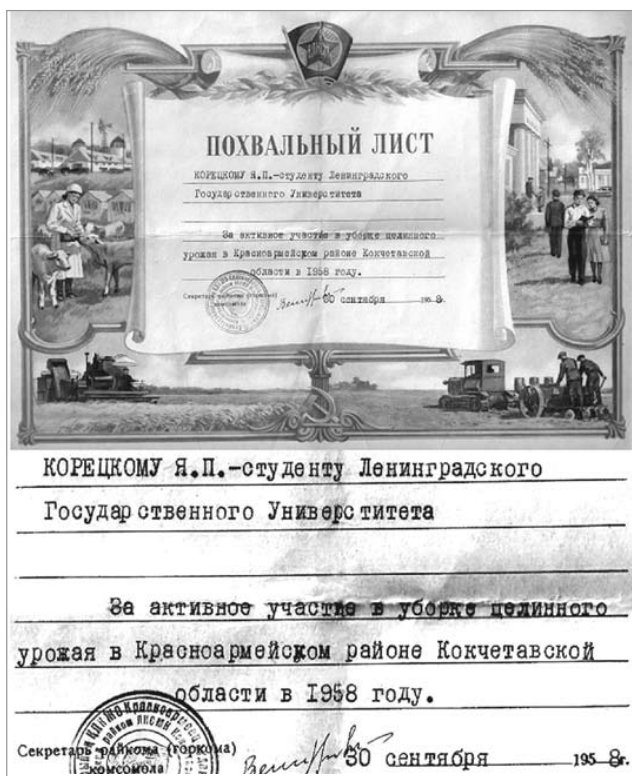 ВЛКСМ
ПОХВАЛЬНЫЙ ЛИСТ
КОРЕЦКОМУ Я.П.-студенту Ленинградского
Государственного Университета
За активное участие в уборке целинного
урожая в Красноармейском районе Кокчетавской
области в 1958 году.
Секретарь райкома (горкома)
комсомола
30 сентября 1958г.
КОРЕЦКОМУ Я.П.-студенту Ленинградского
Государственного Университета
За активное участие в уборке целинного
урожая в Красноармейском районе Кокчетавской
области в 1958 году.
Секретарь райкома (горкома)
комсомола
30 сентября 1958г.